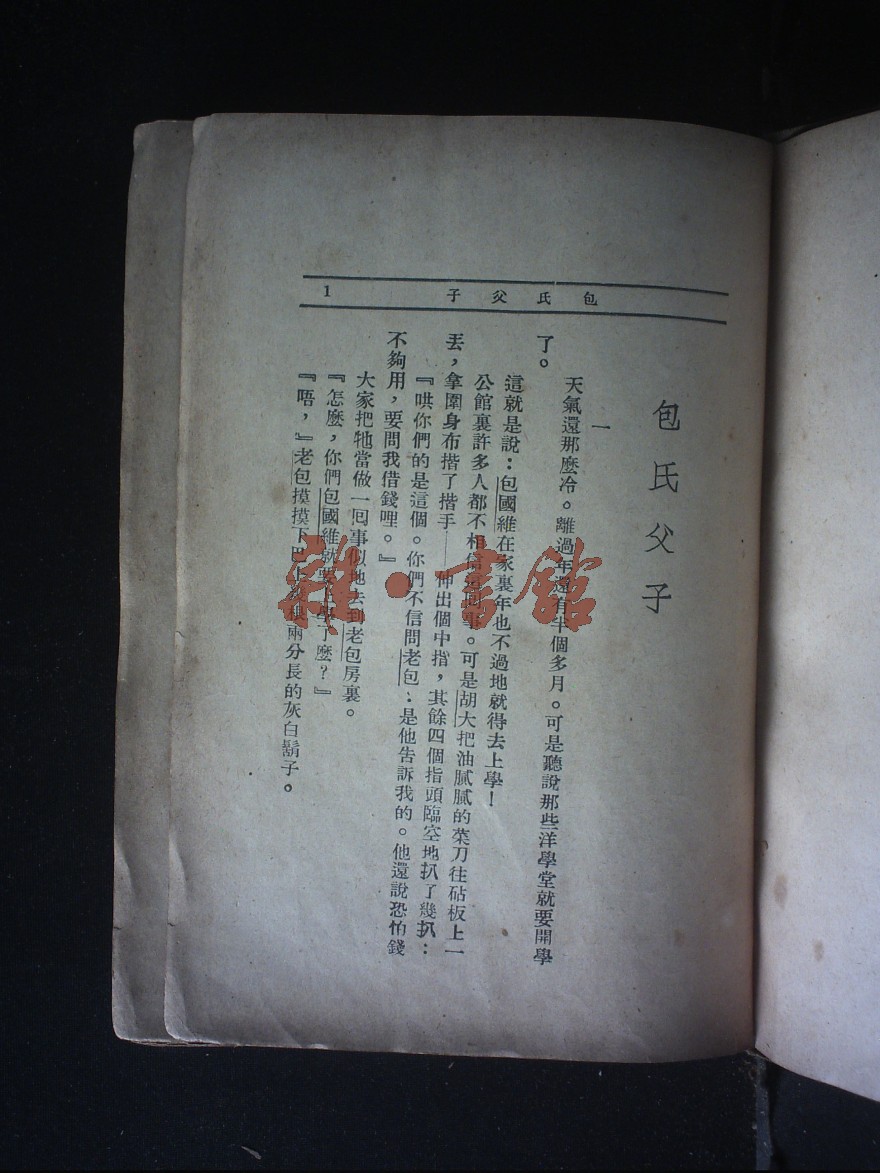 包氏父子
1
包氏父子
一
天氣還那麼冷。離過年還有半個多月。可是聽說那些洋學堂就要開學
了。
這就是說：包國維在家裏年也不過地就得去上學！
公館裏許多人都不相信這回事。可是胡大把油膩膩的菜刀往砧板上一
丟，拿圍身布揩了揩手——伸出個中指，其餘四個指頭臨空地扒了幾扒：
『哄你們的是這個。你們不信問老包：是他告訴我的。他還說恐怕錢
不夠用，要問我借錢哩。』
大家把牠當做一回事似地去到老包房裏。
『怎麼，你們包國維就要上學了麼？』
『唔，』老包摸摸下巴上幾根兩分長的灰白鬍子。
雜·書館